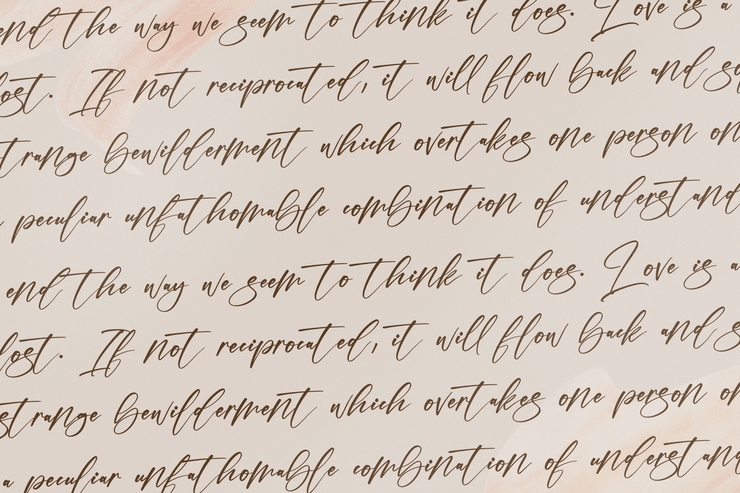 end the way we seem to think it does. Love is a
lost. If not reciprocated, it will flow back and
strange bewilderment which overtakes one person on
peculiar unfathomable combination of understand
end the way we seem to think it does. Love is a
lost. If not reciprocated, it will flow back and s
strange bewilderment which overtakes one person on
a peculiar unfathomable combination of understand